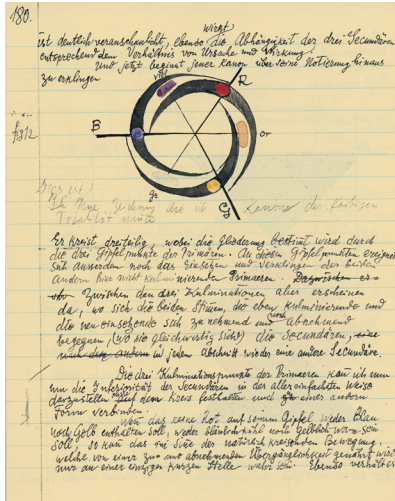 180.
wirkt
ist deutlich veranschaulicht, ebenso die Abhängigkeit der drei Secundären
entsprechend dem Verhältnis von Ursache und Wirkung.
Und jetzt beginnt jener Kanon über seine Notierung hinaus
zu erklingen
viol
R
B
or
gr
G
fig 12
Dies ist
Zeichnung die Kanon der farbigen
Totalität
Er kreist dreiteilig, wobei die Gliederung bestimmt wird durch
die drei Gipfelpunkte der Primären. An diesen Gipfelpunkten ereignet
sich ausserdem noch das Einsetzen und Verklingen der beiden
andern hier nicht kulminierenden Primaeren. Dazwischen
Zwischen den drei Kulminationen aber erscheinen
da, wo sich die beiden Stimen, die eben kulminierende und
die neu einsetzende sich zunehmend und abnehmend
begegnen, (wo sie gleichwertig sind) die Secundären,
in jedem Abschnitt wieder eine andere Secundäre.
Die drei Kulminationspunkte der Primaeren kan ich nun
um die Inferiorität der Secundären in der allereinfachsten Weise
darzustellen auf dem Kreis festhalten und zu einer andern
Form verbinden.
Wen das reine Rot auf seinem Gipfel weder Blau
noch Gelb enthalten soll, weder bläulich kühl noch gelblich warm sein
soll, so kan das im Sine der natürlich kreisenden Bewegung,
welche von einer zu und abnehmenden Übergänglichkeit genährt wird
nur an einer einzigen kurzen Stelle wahr sein. Ebenso verhält es